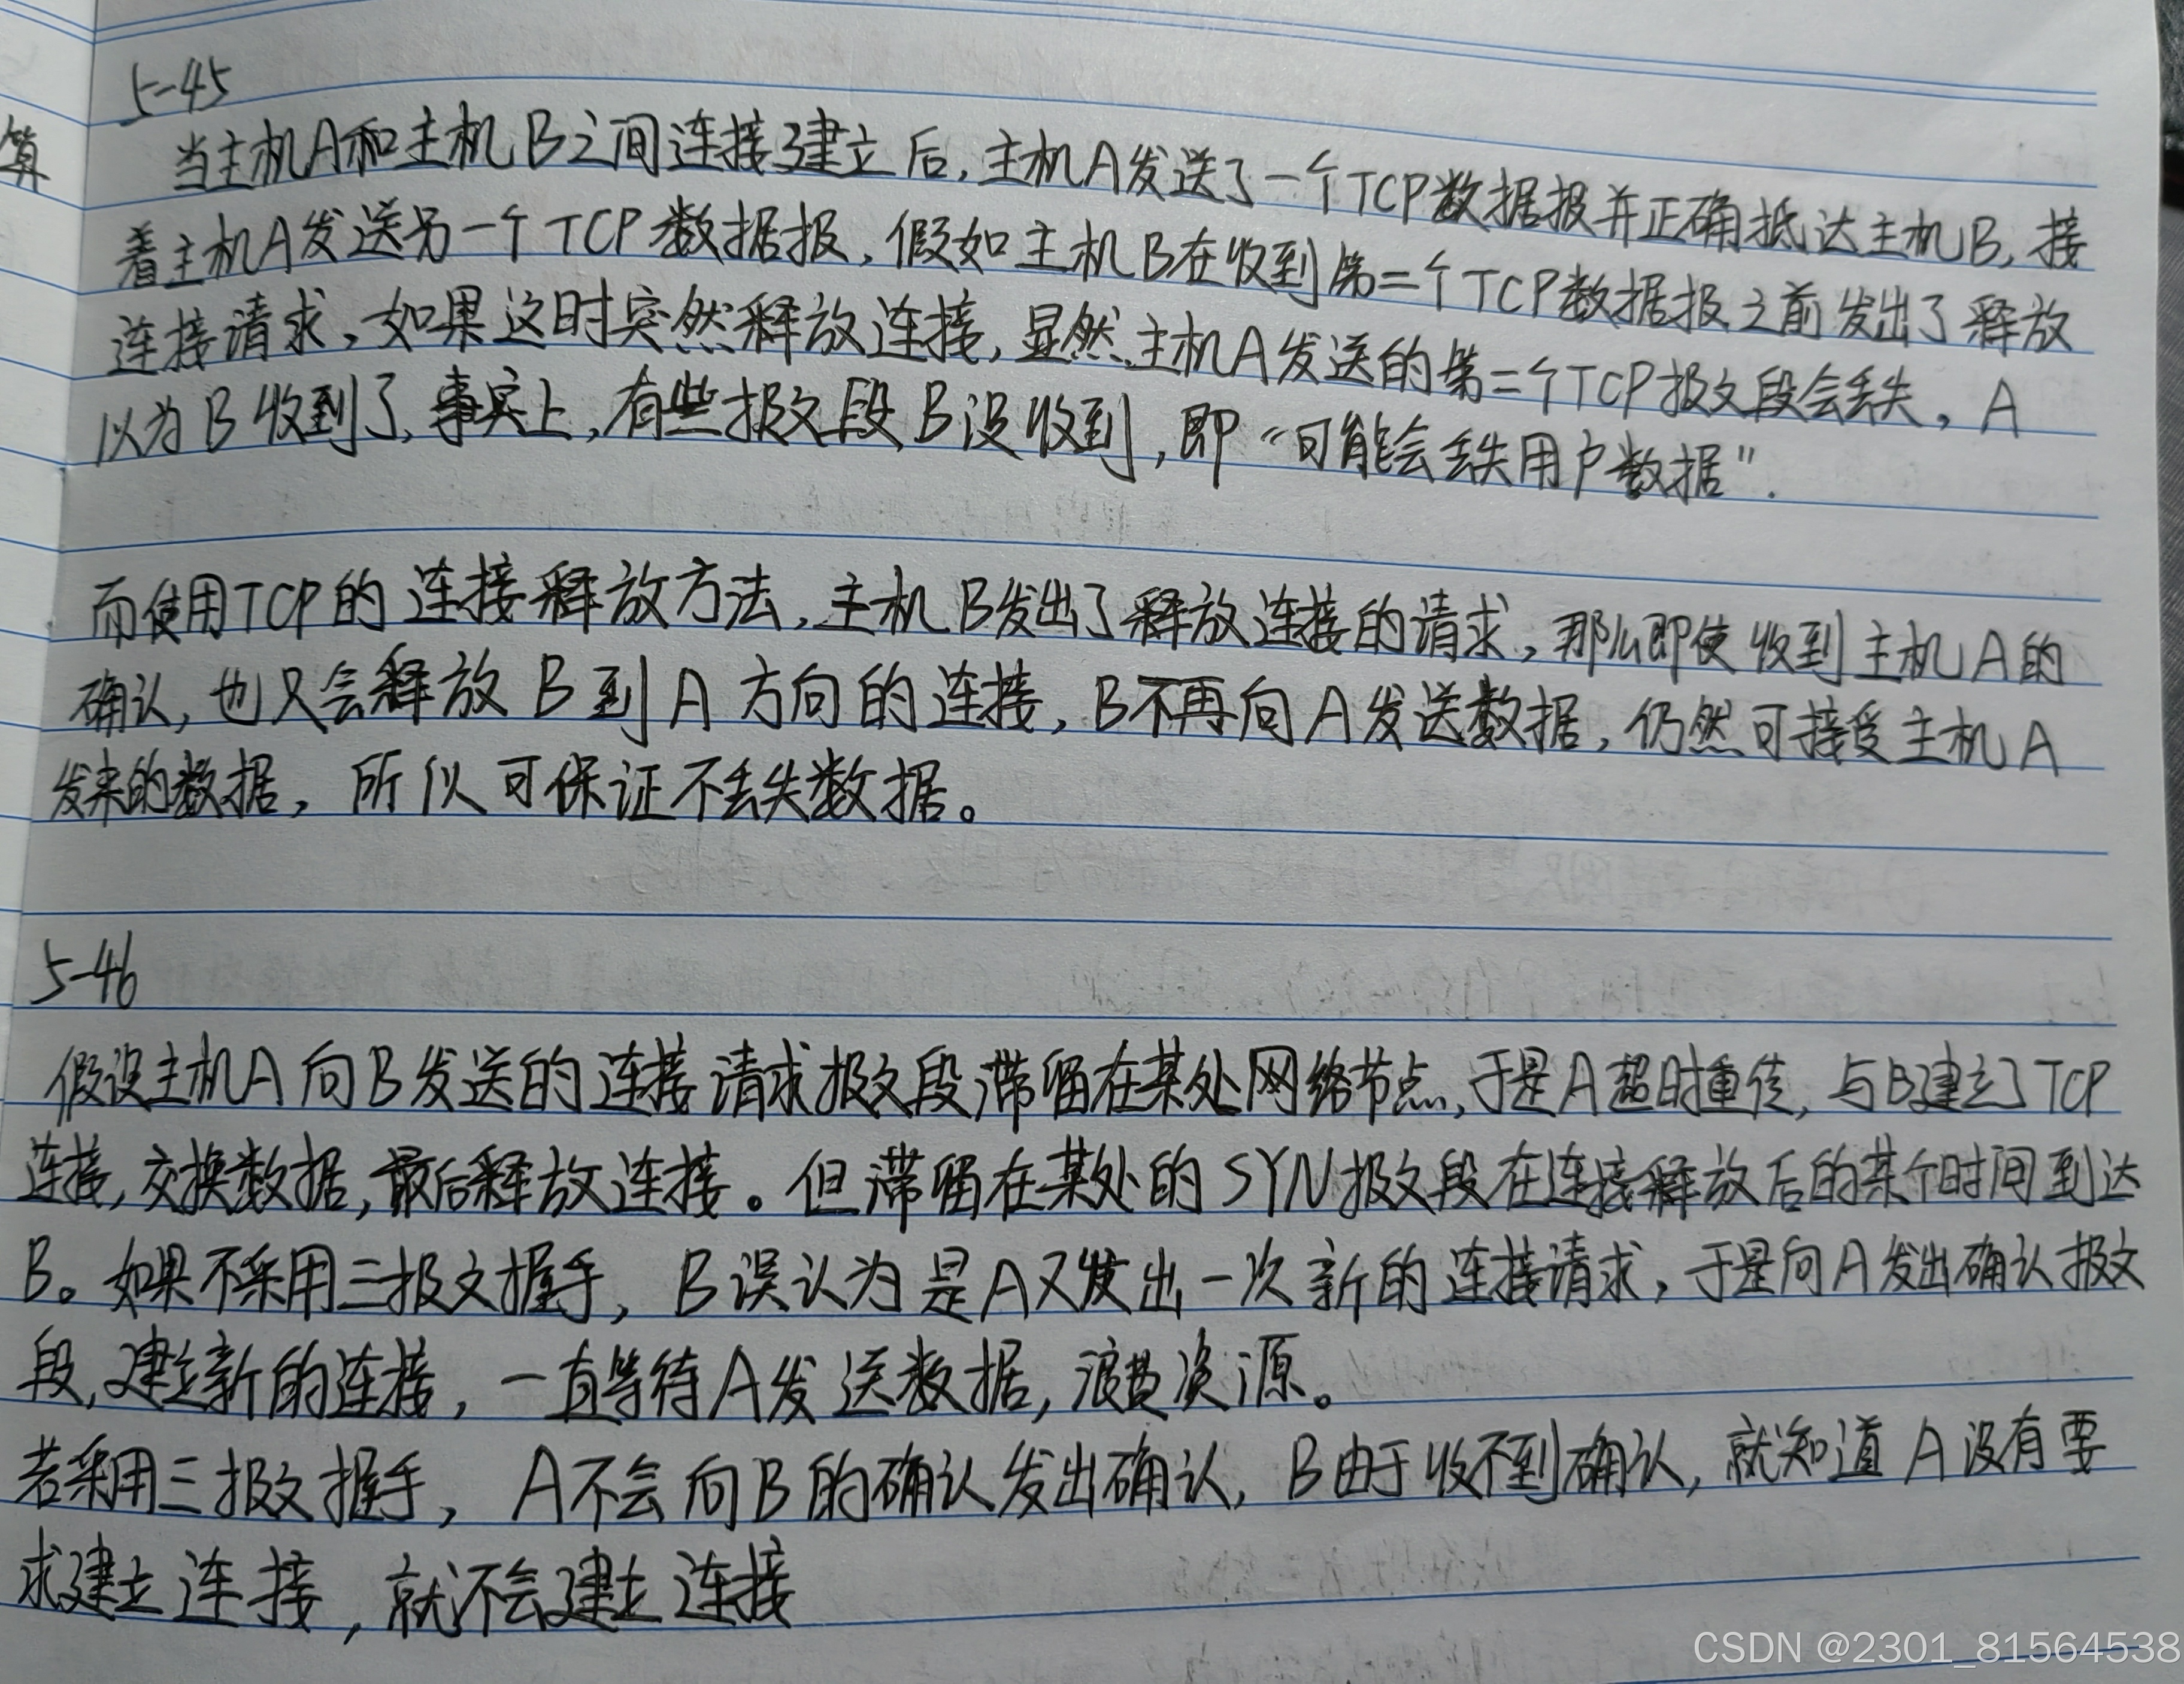 算
5-45
当主机A和主机B之间连接建立后,主机A发送了一个TCP数据报并正确抵达主机B,接
着主机A发送另一个TCP数据报,假如主机B在收到第二个TCP数据报之前发出了释放
连接请求,如果这时突然释放连接,显然主机A发送的第二个TCP报文段会丢失,A
以为B收到了,事实上,有些报文段B没收到,即“可能会丢失用户数据”.
而使用TCP的连接释放方法,主机B发出了释放连接的请求,那么即使收到主机A的
确认,也只会释放B到A方向的连接,B不再向A发送数据,仍然可接受主机A
发来的数据,所以可保证不丢失数据。
5-46
假设主机A向B发送的连接请求报文段滞留在某处网络节点,于是A超时重传,与B建立了TCP
连接,交换数据,最后释放连接。但滞留在某处的SYN报文段在连接释放后的某个时间到达
B。如果不采用三报文握手,B误认为是A又发出一次新的连接请求,于是向A发出确认报文
段,建立新的连接,一直等待A发送数据,浪费资源。
若采用三报文握手,A不会向B的确认发出确认,B由于收不到确认,就知道A没有要
求建立连接,就不会建立连接
CSDN @2301_81564538